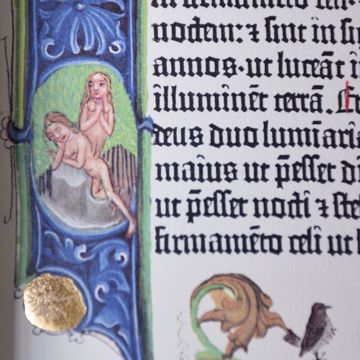 noctem: ⁊ sint in si
annos· ut luceāt i
illuminēt terrā.
deus duo lumīari
maius ut p̄esset
ut p̄esset nocti ⁊ ste
firmamēto celi ut